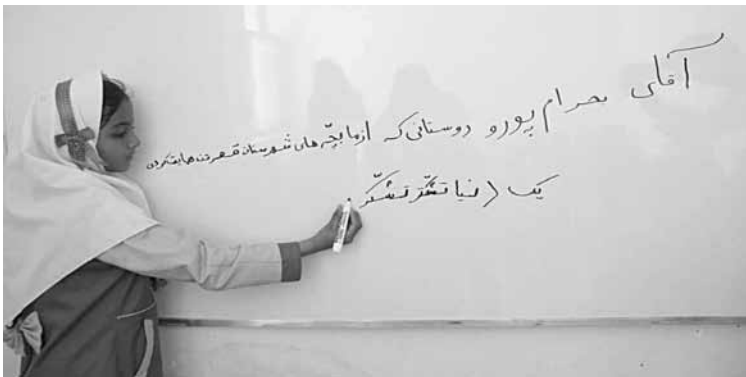 آقای بهرام پور و دوستانی که از ما بچّه های شهرستان قهدریجان حمایت کردن
یک دنیا تشکّر تشکّر